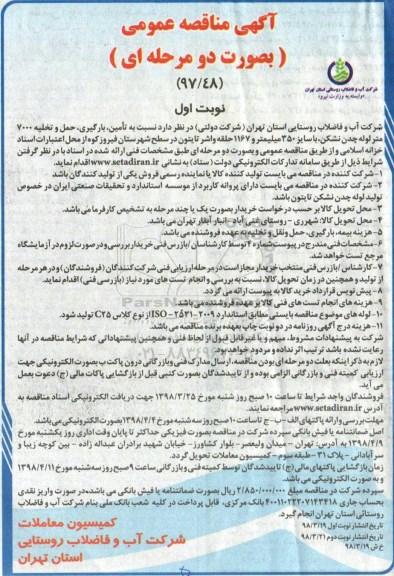 آگهی مناقصه عمومی
( بصورت دو مرحله ای )
(۹۷/٤۸)
نوبت اول
شرکت آب و فاضلاب روستایی استان تهران
وابسته به وزارت نیرو
شرکت آب و فاضلاب روستایی استان تهران ( شرکت دولتی ) در نظر دارد نسبت به تأمین، بارگیری، حمل و تخلیه ۷۰۰۰
متر لوله چدن نشکن، با سایز ۳۵۰ میلیمتر و ۱۱۶۷ حلقه واشر تایتون در سطح شهرستان فیروزکوه از محل اعتبارات اسناد
خزانه اسلامی و از طریق مناقصه عمومی و بصورت دو مرحله ای طبق مشخصات فنی ارائه شده در اسناد با در نظر گرفتن
شرایط ذیل از طریق سامانه تدارکات الکترونیکی دولت (ستاد) به نشانی www.setadiran.ir اقدام نماید.
۱- شرکت کننده در مناقصه می بایست تولید کننده کالا یا نماینده رسمی فروش یکی از تولید کنندگان باشد
۲- شرکت کننده در مناقصه می بایست دارای پروانه کاربرد از موسسه استاندارد و تحقیقات صنعتی ایران در خصوص
تولید لوله چدن نشکن تایتون باشد.
۳- محل تحویل کالا بر حسب درخواست خریدار بصورت یک یا چند مرحله به تشخیص کارفرما می باشد.
۴- محل تحویل کالا: شهرری - روستای غنی آباد - انبار آبفار تهران می باشد.
۵- هزینه بیمه، بارگیری، حمل ونقل و تخلیه به عهده فروشنده می باشد.
۶- مشخصات فنی مندرج در پیوست شماره ۴ توسط کارشناسان / بازرس فنی خریدار بررسی و در صورت لزوم در آزمایشگاه
مرجع تست خواهد شد.
۷- کارشناس / بازرس فنی منتخب خریدار مجاز است در مرحله ارزیابی فنی شرکت کنندگان (فروشندگان) و در هر مرحله
از تولید و همچنین در زمان تحویل کالا، نسبت به بررسی و انجام تست های مورد نیاز (بازرسی فنی) اقدام نماید.
۸- پیش نویس قرارداد خرید کالا به پیوست ارائه می گردد.
۹- هزینه های انجام تست های فنی کالا بر عهده فروشنده می باشد.
۱۰- لوله های موضوع مناقصه بایستی مطابق استاندارد ISO - ۲۵۳۱-۲۰۰۹ از نوع کلاس C25 تولید شود.
۱۱- هزینه درج آگهی روزنامه در دو نوبت چاپ بعهده برنده مناقصه می باشد.
شرکت به پیشنهادات مشروط، مبهم و یا غیر قابل قبول از لحاظ فنی و همچنین پیشنهاداتی که شرایط مناقصه در آنها
رعایت نشده باشد ترتیب اثر نداده و مردود خواهد بود.
لازم به ذکر اینکه بعلت دو مرحله ای بودن مناقصه، ارسال مدارک فنی و بازرگانی درون پاکت ب بصورت الکترونیکی جهت
ارزیابی کمیته فنی و بازرگانی الزامی بوده و از تاییدشدگان بصورت کتبی قبل از بازگشایی پاکات مالی (ج) دعوت بعمل
می آید.
فروشندگان واجد شرایط تا ساعت ۱۰ صبح روز شنبه مورخ ۱۳۹۸/۳/۲۵ جهت دریافت الکترونیکی اسناد مناقصه به
آدرس www.setadiran.ir مراجعه نمایند.
مهلت بررسی و ارائه پاکتهای الف - ب - ج تا ساعت ۱۰ صبح روز سه شنبه مورخ ۱۳۹۸/۴/۴ بصورت الکترونیکی می باشد.
اصل ضمانتنامه یا فیش بانکی سپرده شرکت در مناقصه بصورت فیزیکی حداکثر تا پایان وقت اداری روز یکشنبه مورخ
۱۳۹۸/۴/۹ به آدرس: تهران - میدان ولیعصر - بلوار کشاورز - خیابان شهید برادران عبداله زاده - بین کوچه زیبا و
سرآبادانی - پلاک ۳۱ - طبقه سوم - کمیسیون معاملات تحویل گردد.
زمان بازگشایی پاکتهای مالی (ج) تاییدشدگان توسط کمیته فنی و بازرگانی ساعت ۹ صبح روز سه شنبه مورخ ۱۳۹۸/۴/۱۱
و به صورت الکترونیکی می باشد.
سپرده شرکت در مناقصه مبلغ ۲/۸۵۰/۰۰۰/۰۰۰ ریال بصورت ضمانتنامه یا فیش بانکی می باشد در صورت واریز نقدی
بحساب جاری ۴۰۰۱۱۰۲۲۰۷۱۴۳۴۱۸ بانک مرکزی، قابل پرداخت در کلیه شعب بانک ملی بنام شرکت آب و فاضلاب
روستائی استان تهران انجام گیرد.
تاریخ انتشار نوبت اول ۹۸/۳/۱۹
تاریخ انتشار نوبت دوم ۹۸/۳/۲۱
خ ش ۹۸/۳/۱۹
کمیسیون معاملات
شرکت آب و فاضلاب روستایی
استان تهران